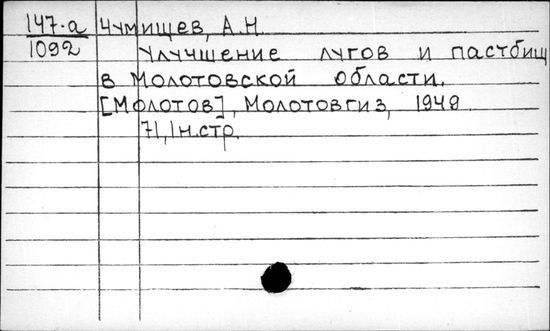 147-а Чумищев, А.Н.
1092 Улучшение лугов и пастбищ
в Молотовской области.
[Молотов], Молотовгиз, 1949.
71, 1 н.стр.